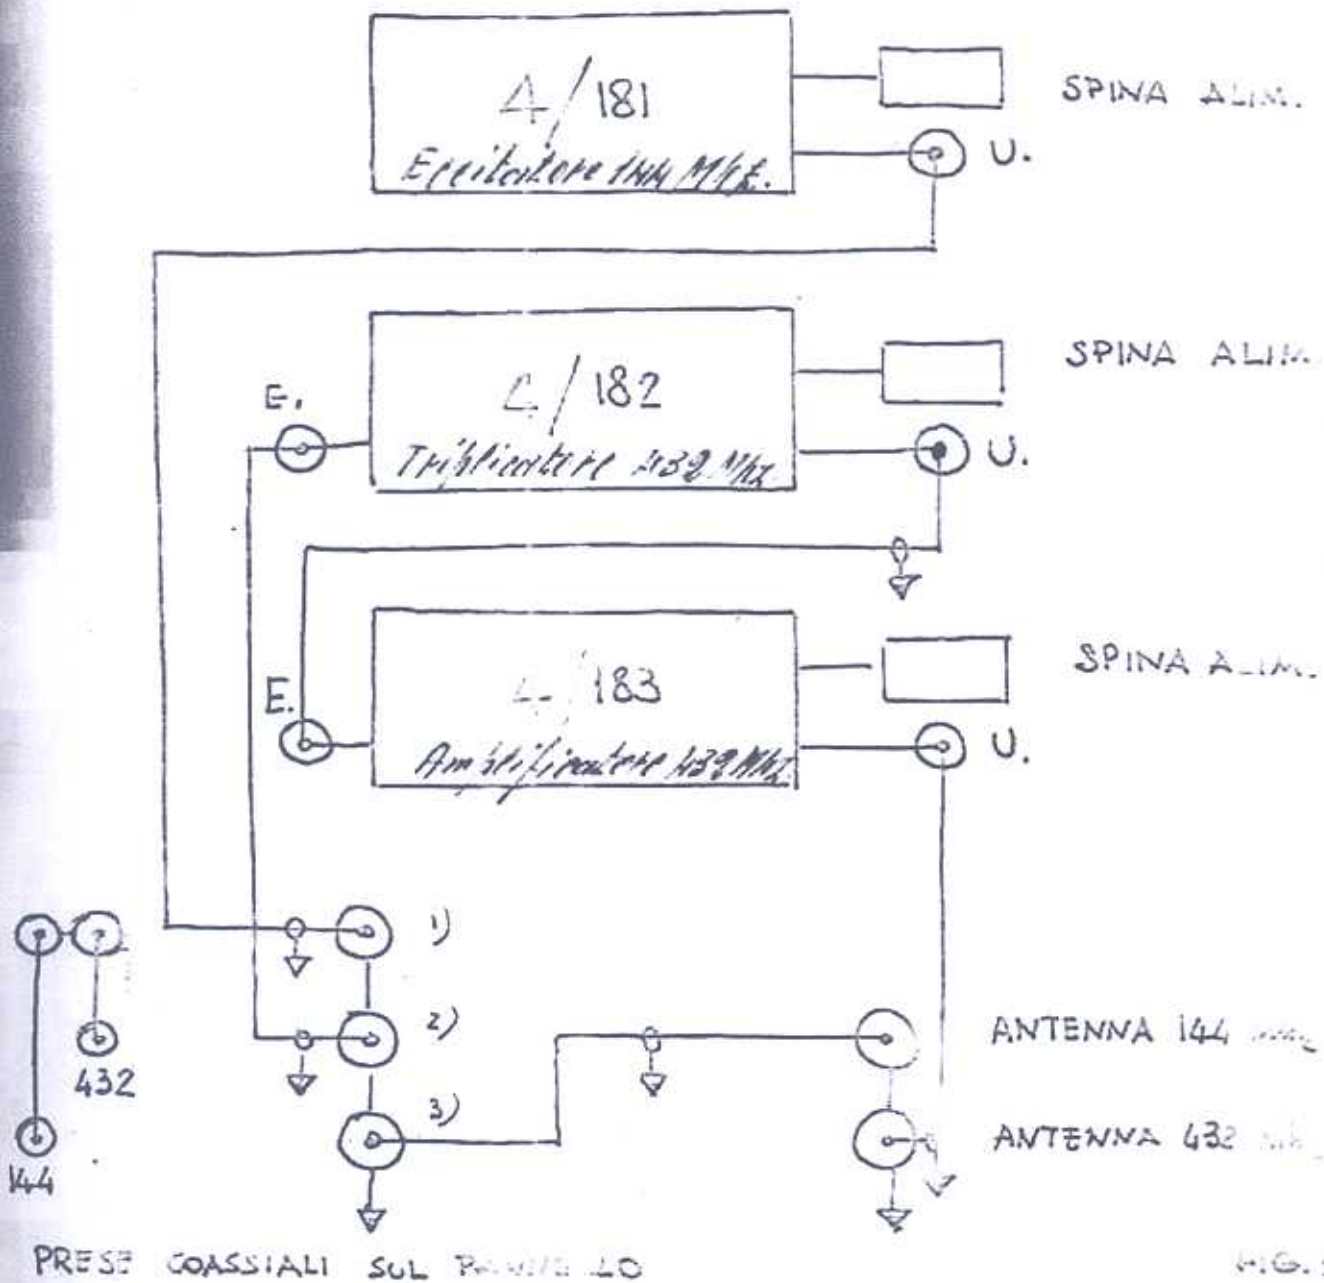 4/181
Eccitatore 144 Mhz.
SPINA ALIM.
U.
E.
4/182
Triplicatore 432 Mhz
SPINA ALIM.
U.
E.
4/183
Amplificatore 432 Mhz
SPINA ALIM.
U.
1)
2)
3)
432
144
ANTENNA 144
ANTENNA 432
PRESE COASSIALI SUL PANNELLO
FIG.